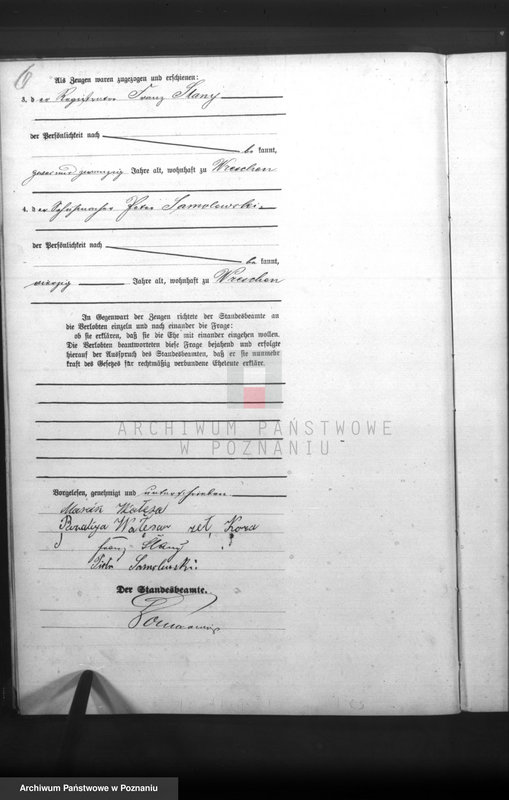 Als Zeugen waren zugezogen und erschienen:
3. d er Registrator Franz Slany
der Persönlichkeit nach
be kannt,
zwanzig Jahre alt, wohnhaft zu Wreschen
4. d er Schuhmacher Peter Samolewski
der Persönlichkeit nach
be kannt,
vierzig Jahre alt, wohnhaft zu Wreschen
In Gegenwart der Zeugen richtete der Standesbeamte an
die Verlobten einzeln und nach einander die Frage:
ob sie erklären, daß sie die Ehe mit einander eingehen wollen.
Die Verlobten beantworteten diese Frage bejahend und erfolgte
hierauf der Ausspruch des Standesbeamten, daß er sie nunmehr
kraft des Gesetzes für rechtmäßig verbundene Eheleute erkläre.
ARCHIWUM PAŃSTWOWE
W POZNANIU
Vorgelesen, genehmigt und unterschrieben
Walęsa
Franz Slany
Piotr Samolewski
Der Standesbeamte.
Archiwum Państwowe w Poznaniu